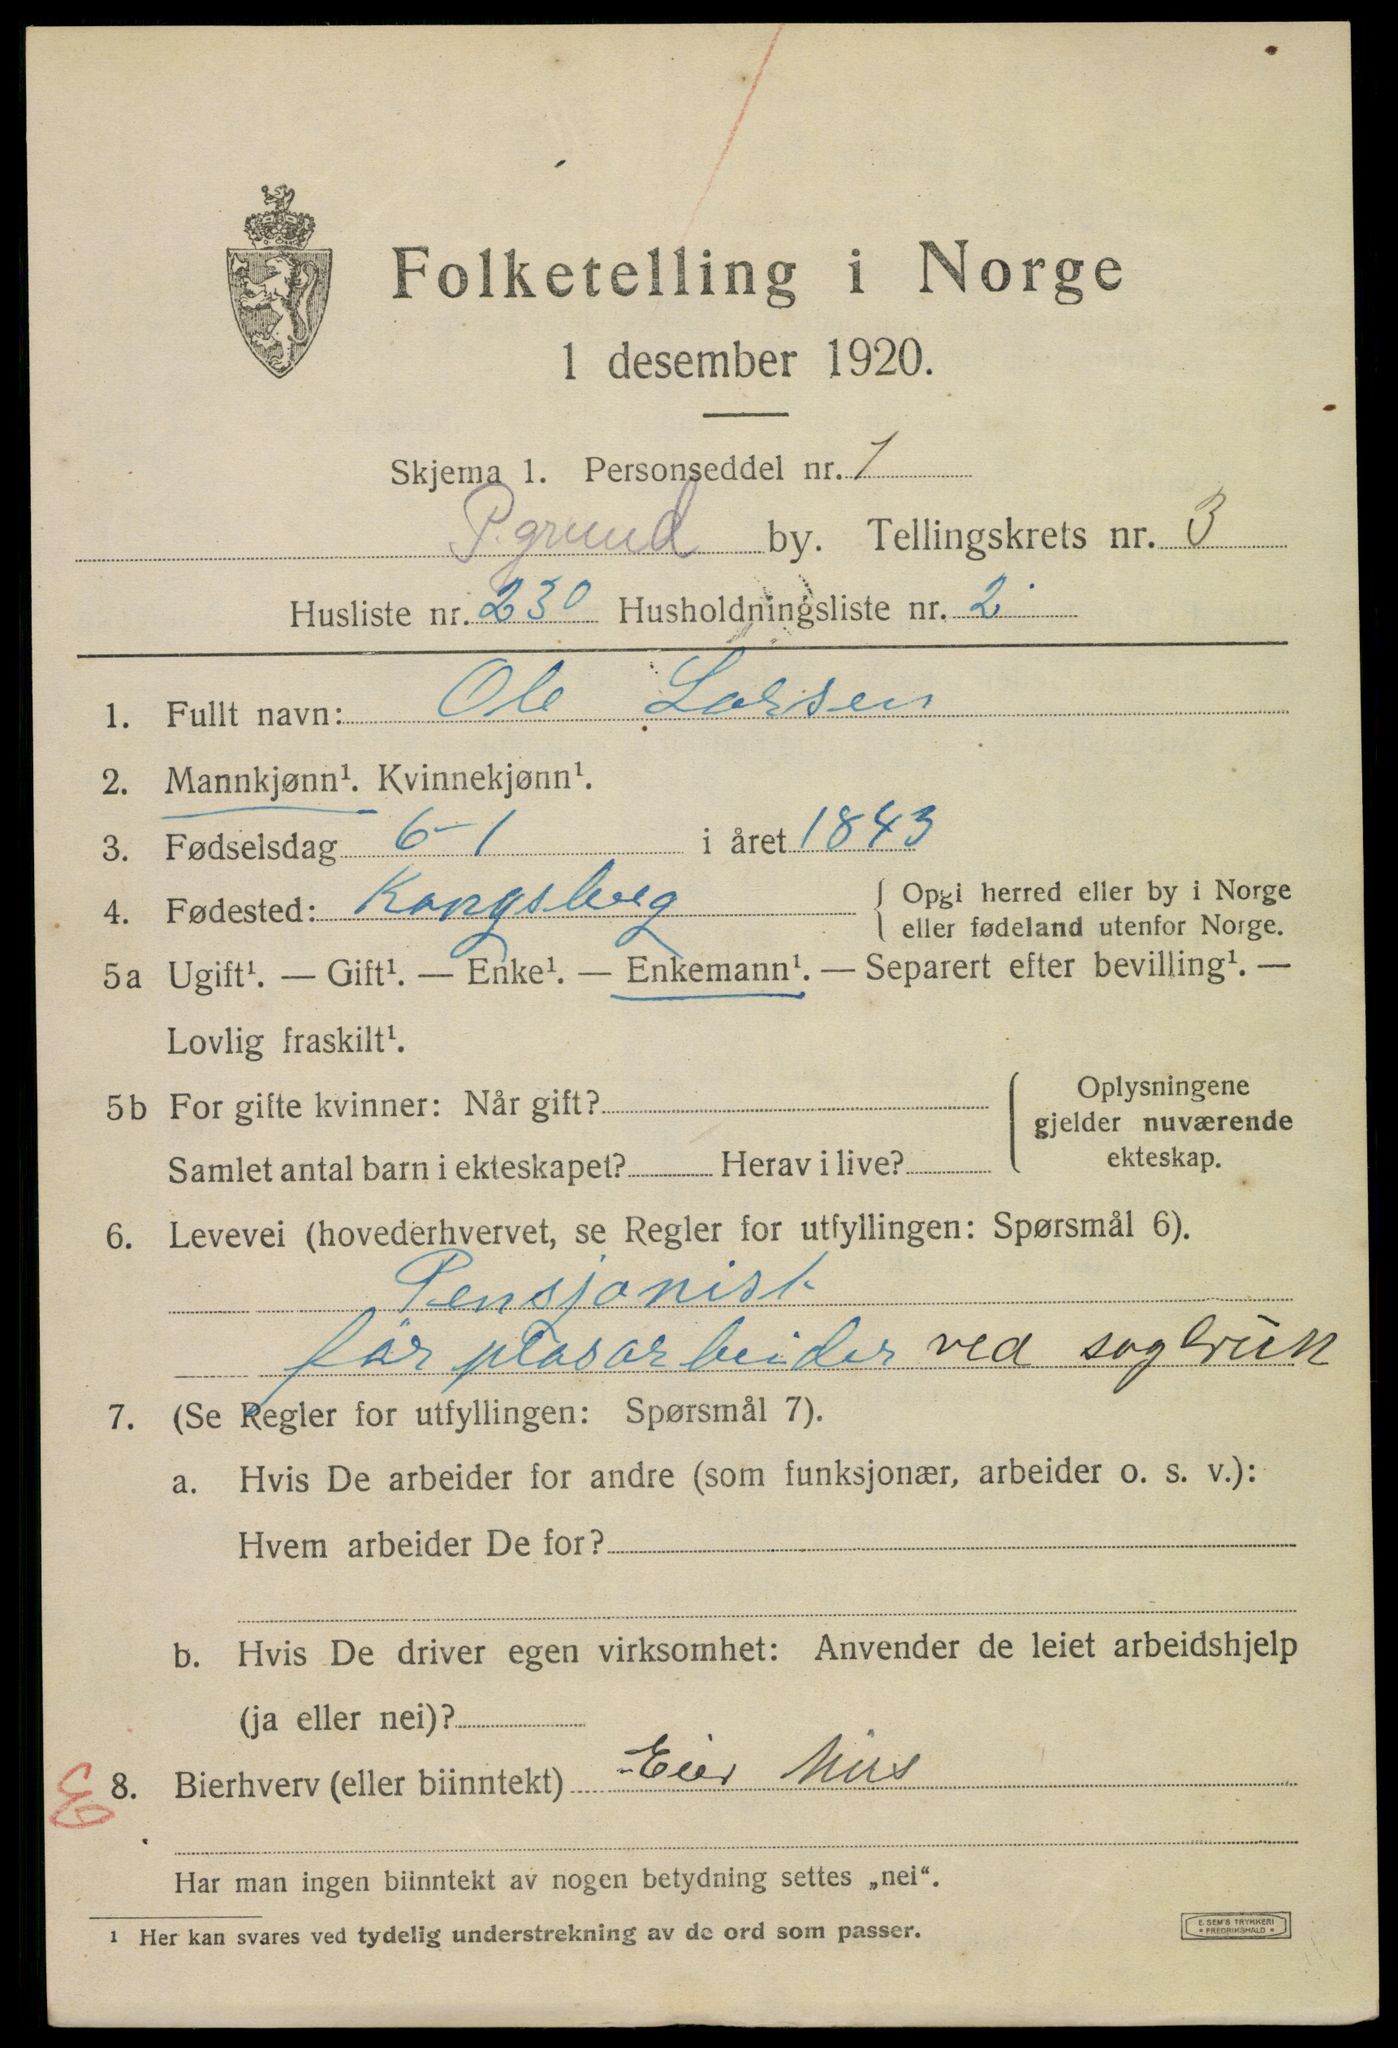 Folketelling i Norge
1 desember 1920.
Skjema 1. Personseddel nr. 1
P.grund by. Tellingskrets nr. 3
Husliste nr. 230 Husholdningsliste nr. 2
1. Fullt navn: Ole Larsen
2. Mannkjønn¹. Kvinnekjønn¹.
3. Fødselsdag 6-1 i året 1843
4. Fødested: Kongsberg { Opgi herred eller by i Norge
eller fødeland utenfor Norge.
5a Ugift¹. — Gift¹. — Enke¹. — Enkemann¹. — Separert efter bevilling¹. —
Lovlig fraskilt¹.
5b For gifte kvinner: Når gift?
Samlet antal barn i ekteskapet? Herav i live?
{ Oplysningene
gjelder nuværende
ekteskap.
6. Levevei (hovederhvervet, se Regler for utfyllingen: Spørsmål 6).
Pensjonist
før plasarbeider ved sagbruk
7. (Se Regler for utfyllingen: Spørsmål 7).
a. Hvis De arbeider for andre (som funksjonær, arbeider o. s. v.):
Hvem arbeider De for?
b. Hvis De driver egen virksomhet: Anvender de leiet arbeidshjelp
(ja eller nei)?
8. Bierhverv (eller biinntekt) Eier Hus
Har man ingen biinntekt av nogen betydning settes „nei“.
¹ Her kan svares ved tydelig understrekning av de ord som passer.
E. SEM'S TRYKKERI
* FREDRIKSHALD *